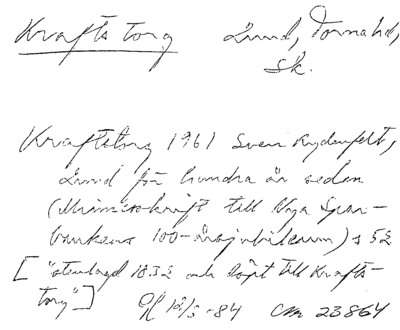 Krafts torg Lund, Torna hd,
Sk.
Kraftstorg 1961 Sven Rydenfelt,
Lund för hundra år sedan
(Minnesskrift till Nya Spar-
bankens 100-årsjubileum) s 52
["stenlagd 1832 och köpt till Krafts-
torg"] 12/3 -84 CM 23864